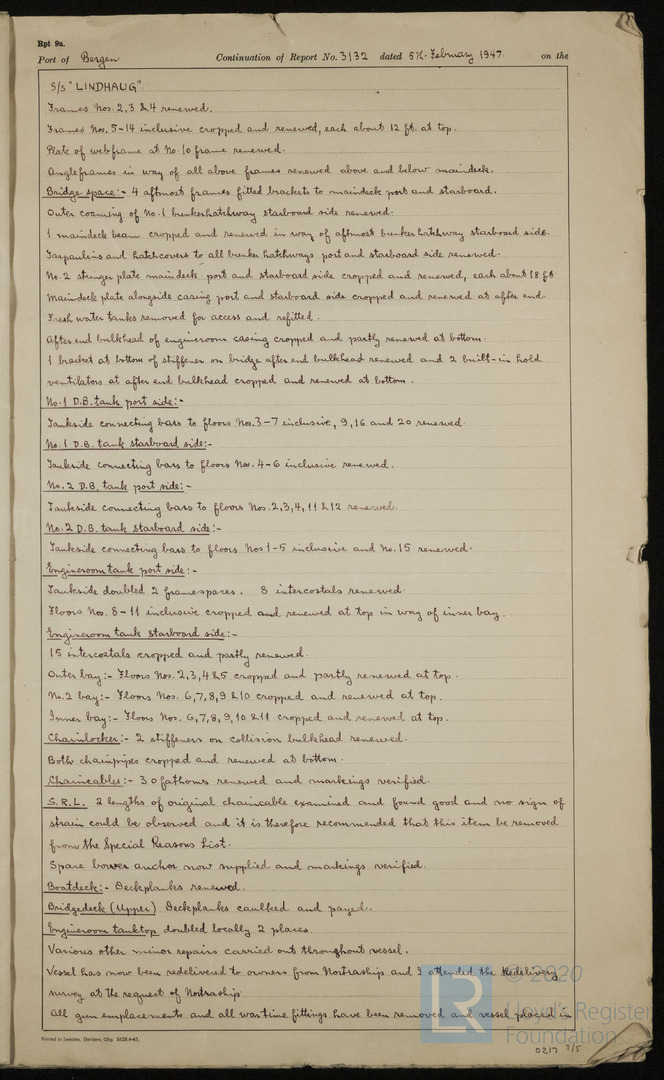 Rpt 9a.
Port of Bergen Continuation of Report No. 3132 dated 5th February 1947 on the
S/S "LINDHAUG"
Frames Nos. 2, 3 & 4 renewed.
Frames Nos. 5-14 inclusive cropped and renewed, each about 12 ft. at top.
Plate of webframe at No. 10 frame renewed.
Angleframes in way of all above frames renewed above and below maindeck.
Bridge space:- 4 aftmost frames fitted brackets to maindeck port and starboard.
Outer coaming of No. 1 bunkerhatchway starboard side renewed.
1 maindeck beam cropped and renewed in way of aftmost bunkerhatchway starboard side.
Tarpaulins and hatchcovers to all bunker hatchways port and starboard side renewed.
No. 2 stringer plate maindeck port and starboard side cropped and renewed, each about 18 ft.
Maindeck plate alongside casing port and starboard side cropped and renewed at after end.
Fresh water tanks removed for access and refitted.
After end bulkhead of engineroom casing cropped and partly renewed at bottom.
1 bracket at bottom of stiffener on bridge after end bulkhead renewed and 2 built-in hold
ventilators at after end bulkhead cropped and renewed at bottom.
No. 1 D.B. tank port side:-
Tankside connecting bars to floors Nos. 3-7 inclusive, 9, 16 and 20 renewed.
No. 1 D.B. tank starboard side:-
Tankside connecting bars to floors Nos. 4-6 inclusive renewed.
No. 2 D.B. tank port side:-
Tankside connecting bars to floors Nos. 2, 3, 4, 11 & 12 renewed.
No. 2 D.B. tank starboard side:-
Tankside connecting bars to floors Nos 1-5 inclusive and No. 15 renewed.
Engineroom tank port side:-
Tankside doubled 2 framespaces. 8 intercostals renewed.
Floors Nos. 8-11 inclusive cropped and renewed at top in way of inner bay.
Engineroom tank starboard side:-
15 intercostals cropped and partly renewed.
Outer bay:- Floors Nos. 2, 3, 4 & 5 cropped and partly renewed at top.
No. 2 bay:- Floors Nos. 6, 7, 8, 9 & 10 cropped and renewed at top.
Inner bay:- Floors Nos. 6, 7, 8, 9, 10 & 11 cropped and renewed at top.
Chainlocker:- 2 stiffeners on collision bulkhead renewed.
Both chainpipes cropped and renewed at bottom.
Chaincables:- 30 fathoms renewed and markings verified.
S.R.L. 2 lengths of original chaincable examined and found good and no sign of
strain could be observed and it is therefore recommended that this item be removed
from the Special Reasons List.
Spare bower anchor now supplied and markings verified.
Boatdeck:- Deckplanks renewed.
Bridgedeck (Upper) Deckplanks caulked and payed.
Engineroom tanktop doubled locally 2 places.
Various other minor repairs carried out throughout vessel.
Vessel has now been redelivered to owners from Nortraship and I attended the Redelivery
survey at the request of Nortraship
All gun emplacements and all wartime fittings have been removed and vessel placed in
Printed in Sweden, Elanders, Gbg.
0217 3/5
© 2020
LR
Lloyd's Register
Foundation